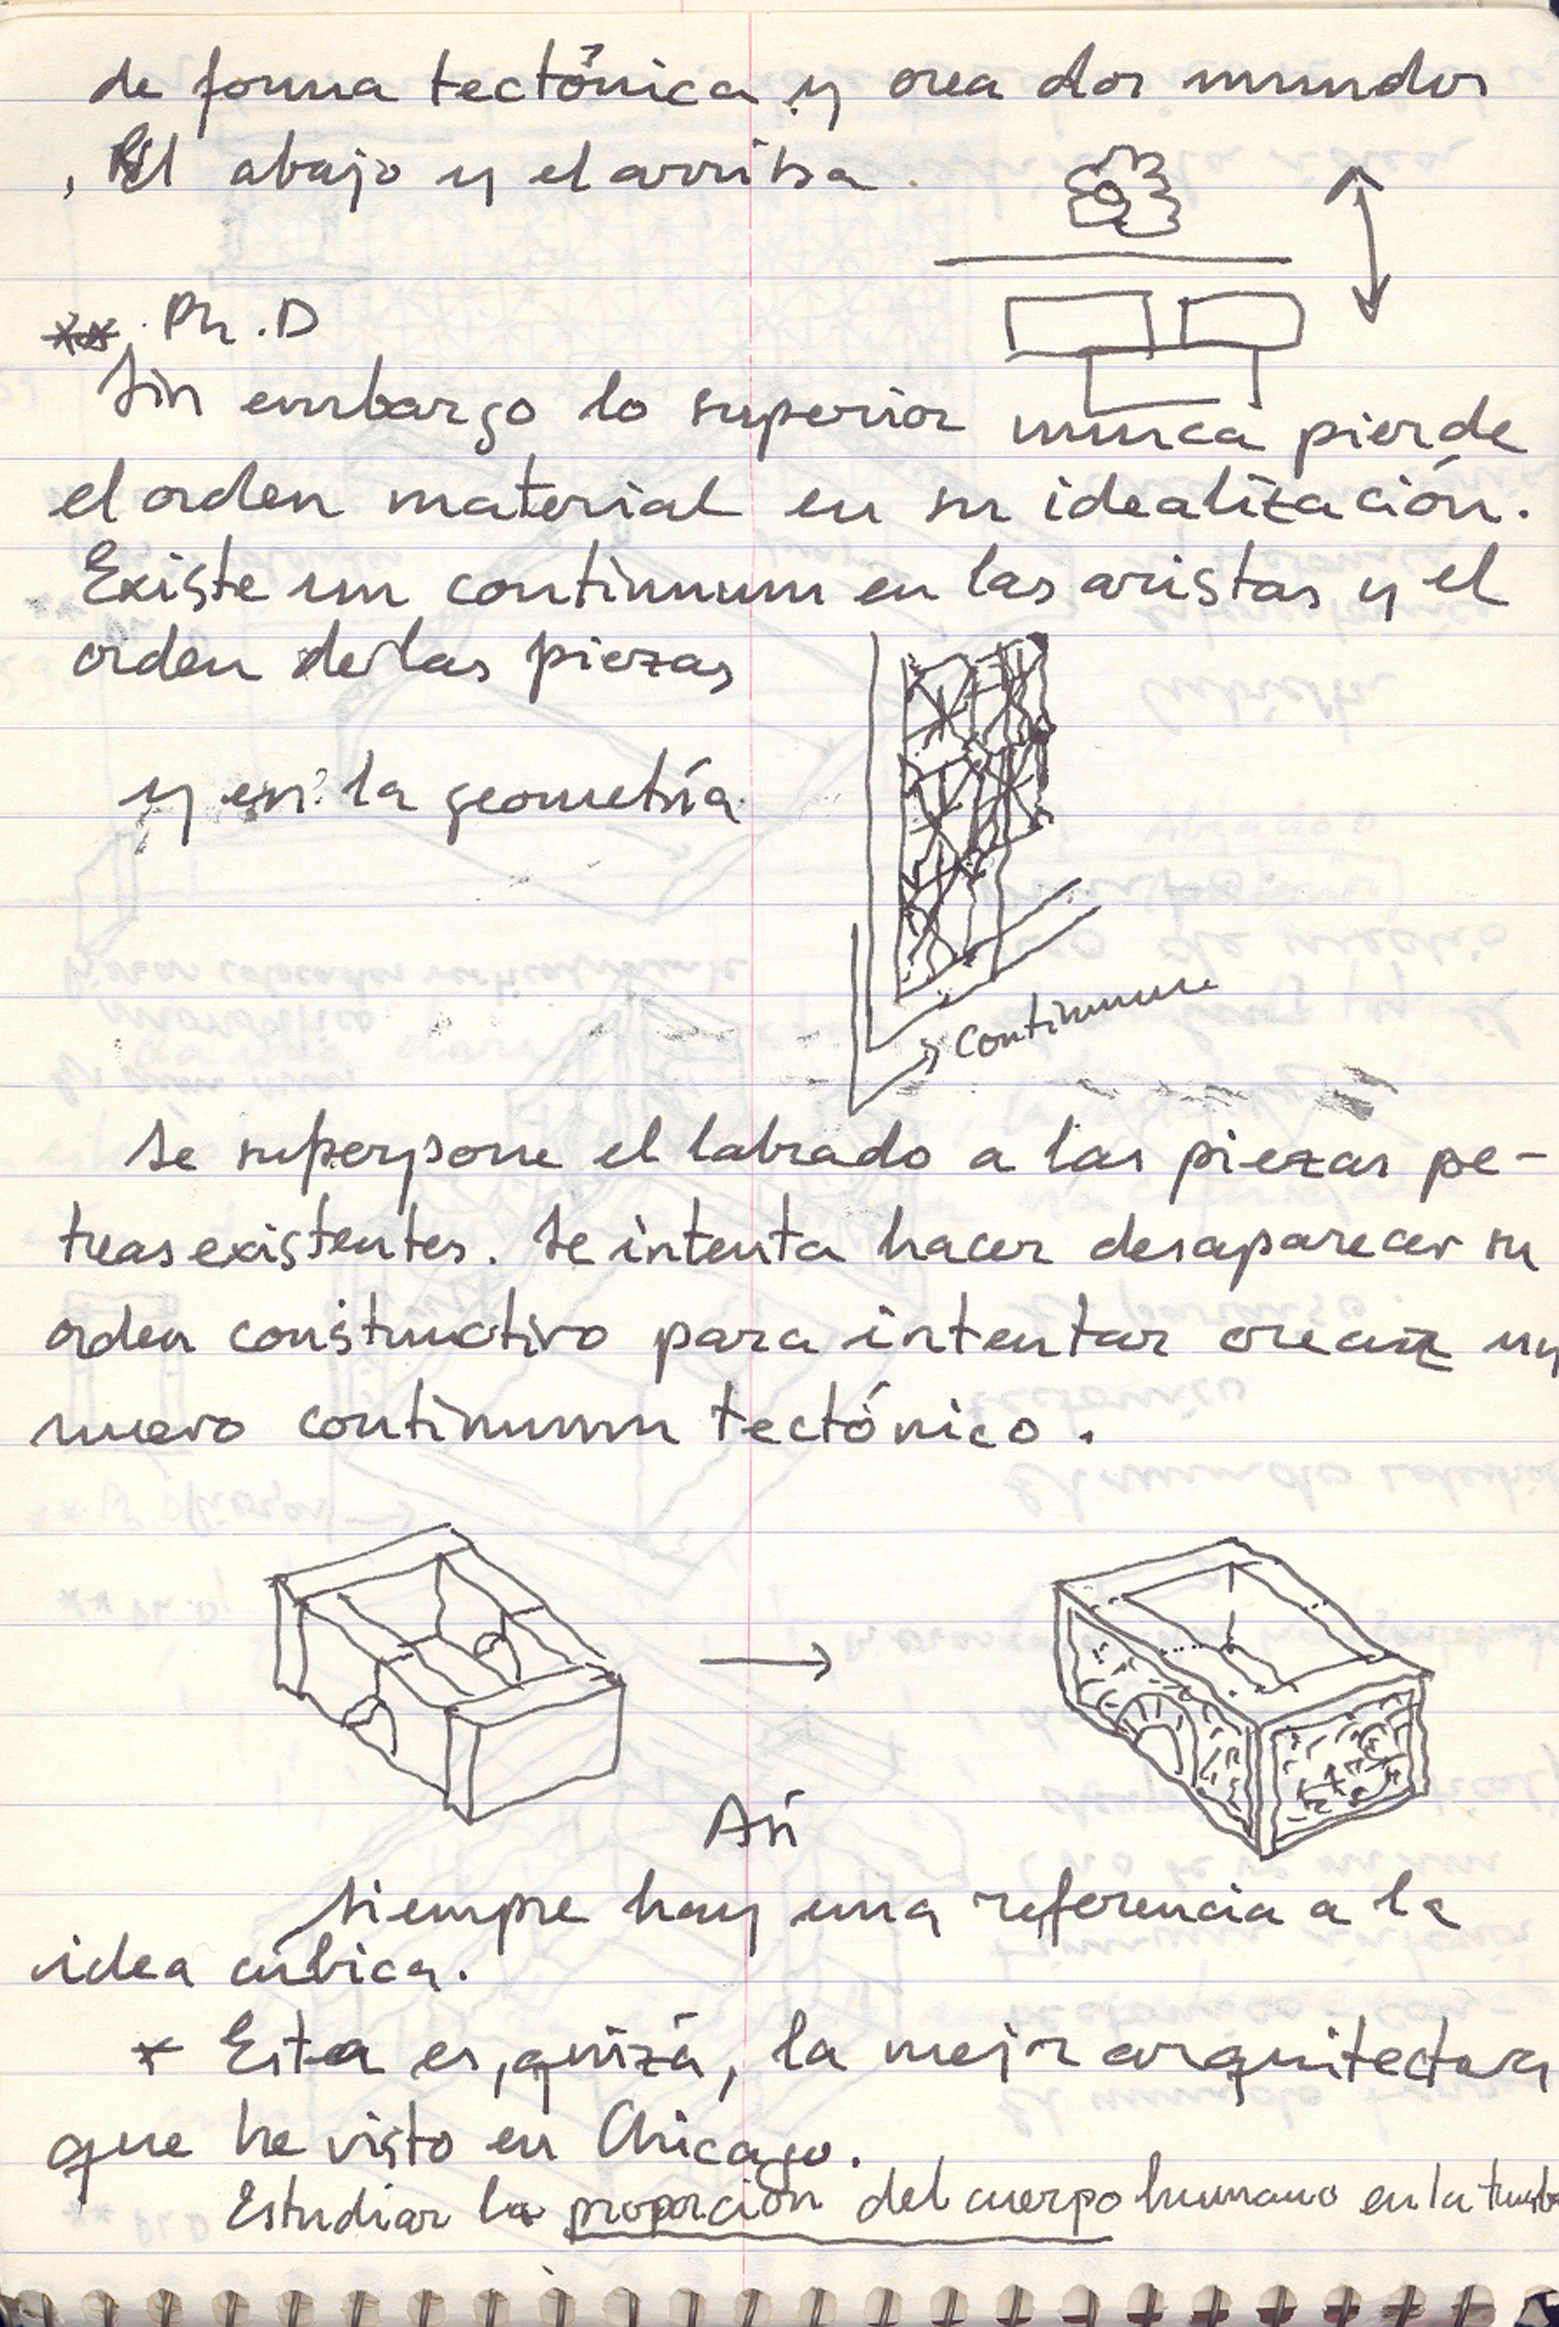 de forma tectónica y crea dos mundos
, El abajo y el arriba.
** Ph.D
Sin embargo lo superior nunca pierde
el orden material en su idealización.
Existe un continuum en las aristas y el
orden de las piezas
y en la geometría
continuum
Se superpone el labrado a las piezas pe-
treas existentes. Se intenta hacer desaparecer su
orden constructivo para intentar crear un
nuevo continuum tectónico.
Así
siempre hay una referencia a la
idea cúbica.
* Esta es, quizá, la mejor arquitectura
que he visto en Chicago.
Estudiar la proporción del cuerpo humano en la tumba